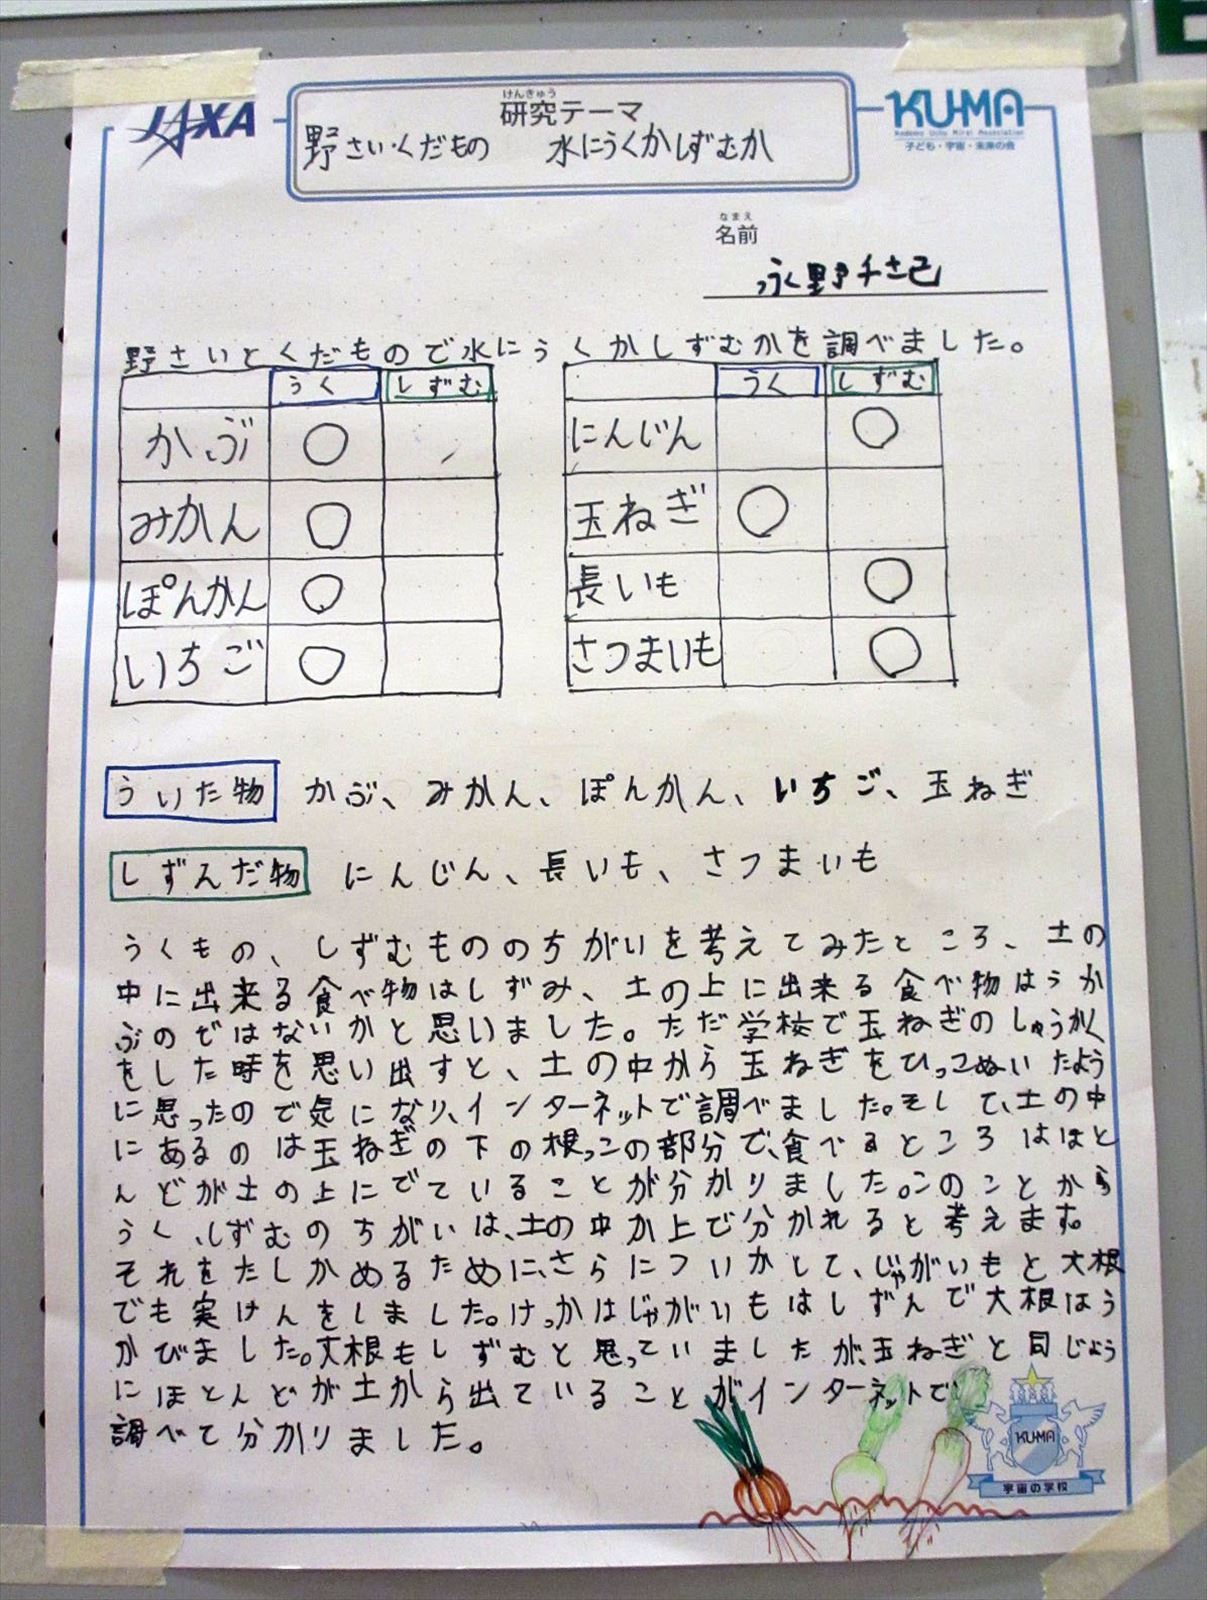 JAXA
けんきゅう
研究テーマ
野さい・くだもの 水にうくかしずむか
KU-MA
Kodomo Uchu Mirai Association
子ども・宇宙・未来の会
なまえ
名前
永野千さ己
野さいとくだもので水にうくかしずむかを調べました。
うく しずむ
かぶ ○
みかん ○
ぽんかん ○
いちご ○
うく しずむ
にんじん ○
玉ねぎ ○
長いも ○
さつまいも ○
ういた物 かぶ、みかん、ぽんかん、いちご、玉ねぎ
しずんだ物 にんじん、長いも、さつまいも
うくもの、しずむもののちがいを考えてみたところ、土の
中に出来る食べ物はしずみ、土の上に出来る食べ物はうか
ぶのではないかと思いました。ただ学校で玉ねぎのしゅうかく
をした時を思い出すと、土の中から玉ねぎをひっこぬいたよう
に思ったので気になり、インターネットで調べました。そして、土の中
にあるのは玉ねぎの下の根っこの部分で、食べるところはほと
んどが土の上にでていることが分かりました。このことから
うく、しずむのちがいは、土の中か上で分かれると考えます。
それをたしかめるために、さらについかして、じゃがいもと大根
でも実けんをしました。けっかはじゃがいもはしずんで大根はう
かびました。大根もしずむと思っていましたが、玉ねぎと同じよう
にほとんどが土から出ていることがインターネットで
調べて分かりました。
KU-MA
宇宙の学校